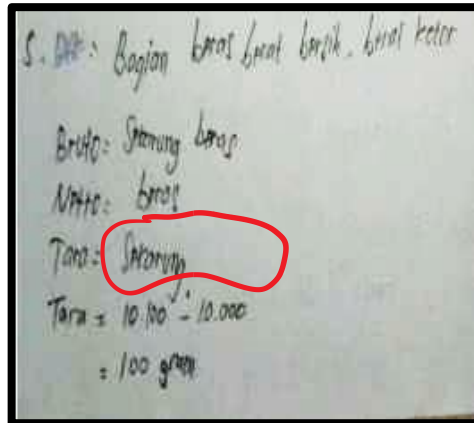 5. Dik: Bagian beras berat bersih, berat kotor
Bruto: Skarung beras
Netto: beras
Tara: Skarung
Tara = 10.100 - 10.000
= 100 gram